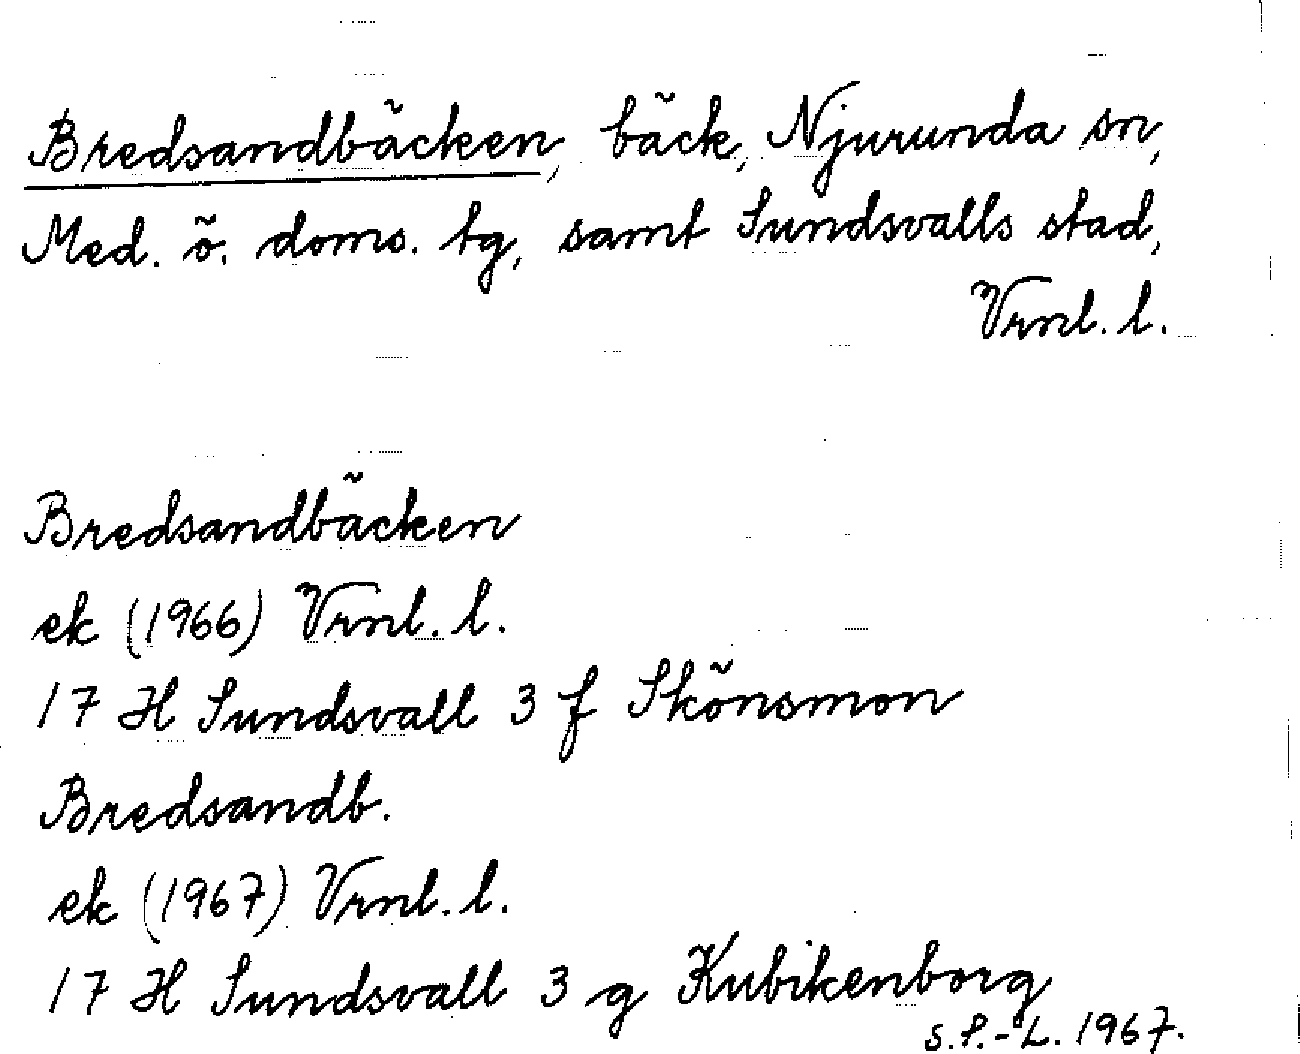 Bredsandbäcken, bäck, Njurunda sn,
Med. ö. doms. tg, samt Sundsvalls stad,
Vrnl. l.
Bredsandbäcken
ek (1966) Vrnl. l.
17 H Sundsvall 3 f Skönsmon
Bredsandb.
ek (1967) Vrnl. l.
17 H Sundsvall 3 g Kubikenborg
S.P.-L. 1967.